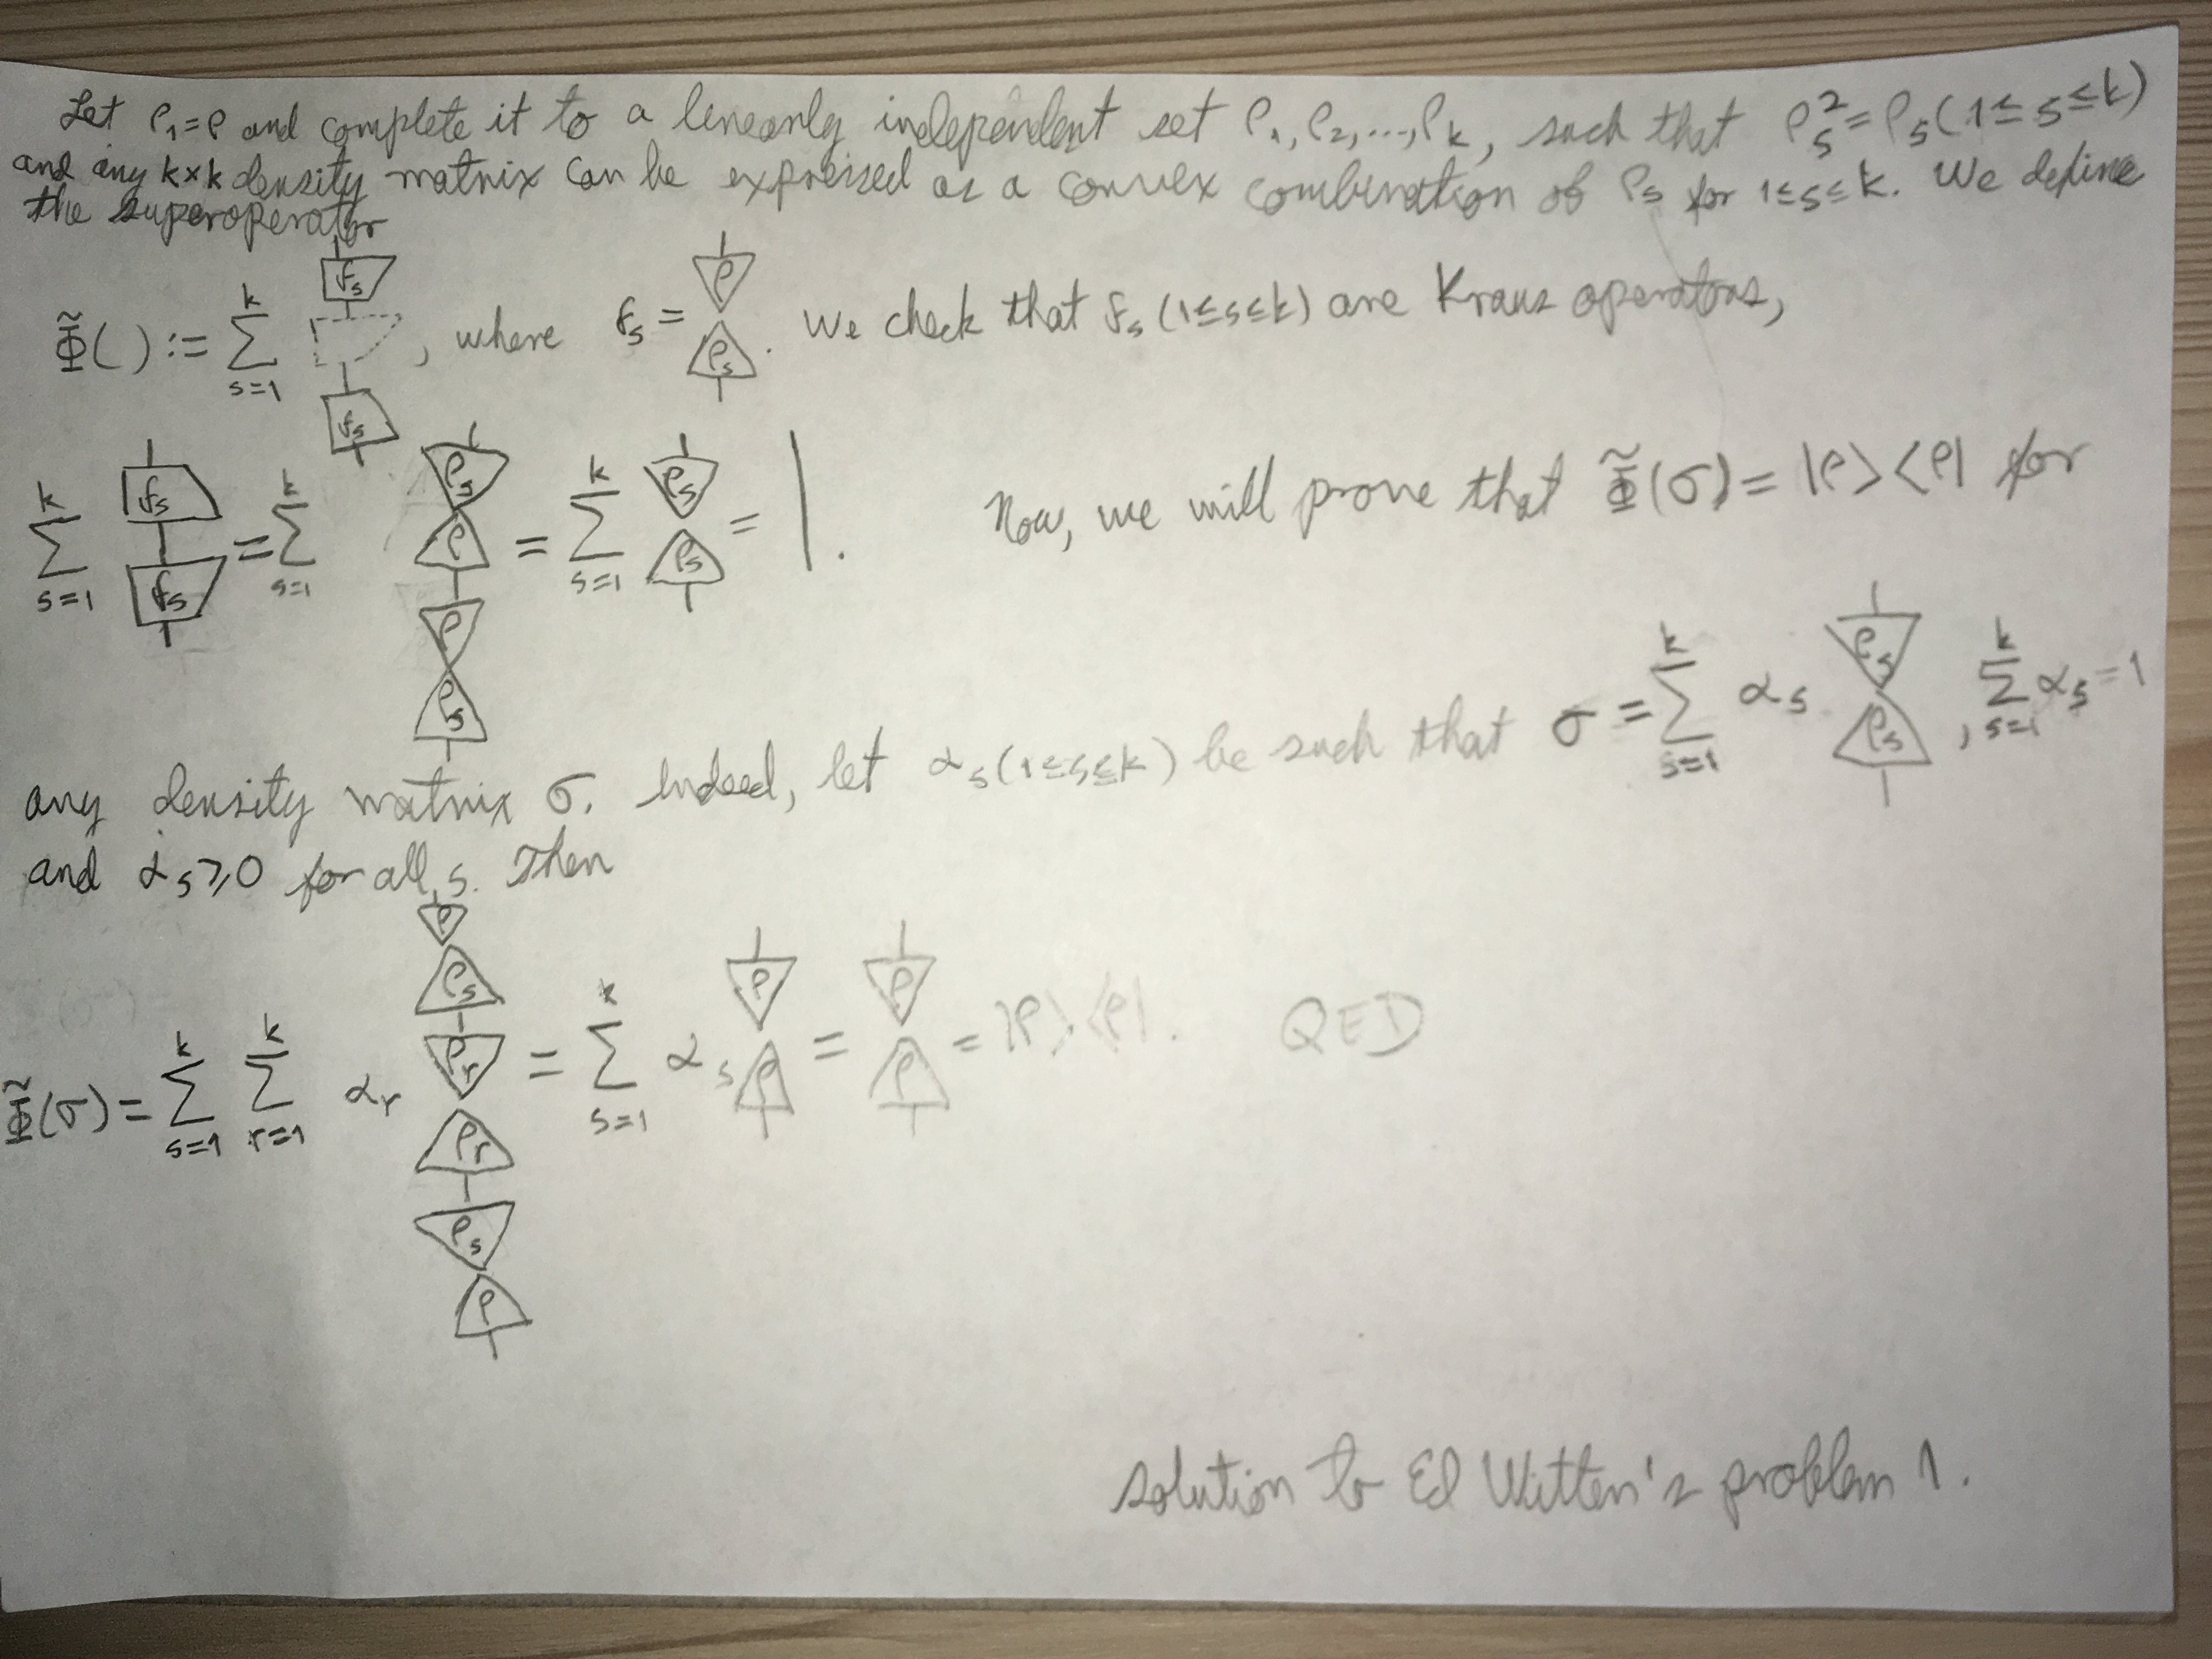 Let ρ₁=ρ and complete it to a linearly independent set ρ₁, ρ₂, ..., ρₖ, such that ρₛ²=ρₛ (1≤s≤k)
and any k×k density matrix can be expressed as a convex combination of ρₛ for 1≤s≤k. We define
the superoperator
Φ̃( ) := ∑ₛ₌₁ᵏ fₛ fₛ , where fₛ = ρ ρₛ . We check that fₛ (1≤s≤k) are Kraus operators,
∑ₛ₌₁ᵏ fₛ fₛ = ∑ₛ₌₁ᵏ ρₛ ρ ρ ρₛ = ∑ₛ₌₁ᵏ ρₛ ρₛ = | . Now, we will prove that Φ̃(σ) = |ρ><ρ| for
any density matrix σ. Indeed, let αₛ (1≤s≤k) be such that σ = ∑ₛ₌₁ᵏ αₛ ρₛ ρₛ , ∑ₛ₌₁ᵏ αₛ = 1
and αₛ ⩾ 0 for all s. Then
Φ̃(σ) = ∑ₛ₌₁ᵏ ∑ᵣ₌₁ᵏ αᵣ ρ ρₛ ρᵣ ρᵣ ρₛ ρ = ∑ₛ₌₁ᵏ αₛ ρ ρ = ρ ρ = |ρ><ρ|. QED
solution to Ed Witten's problem 1.